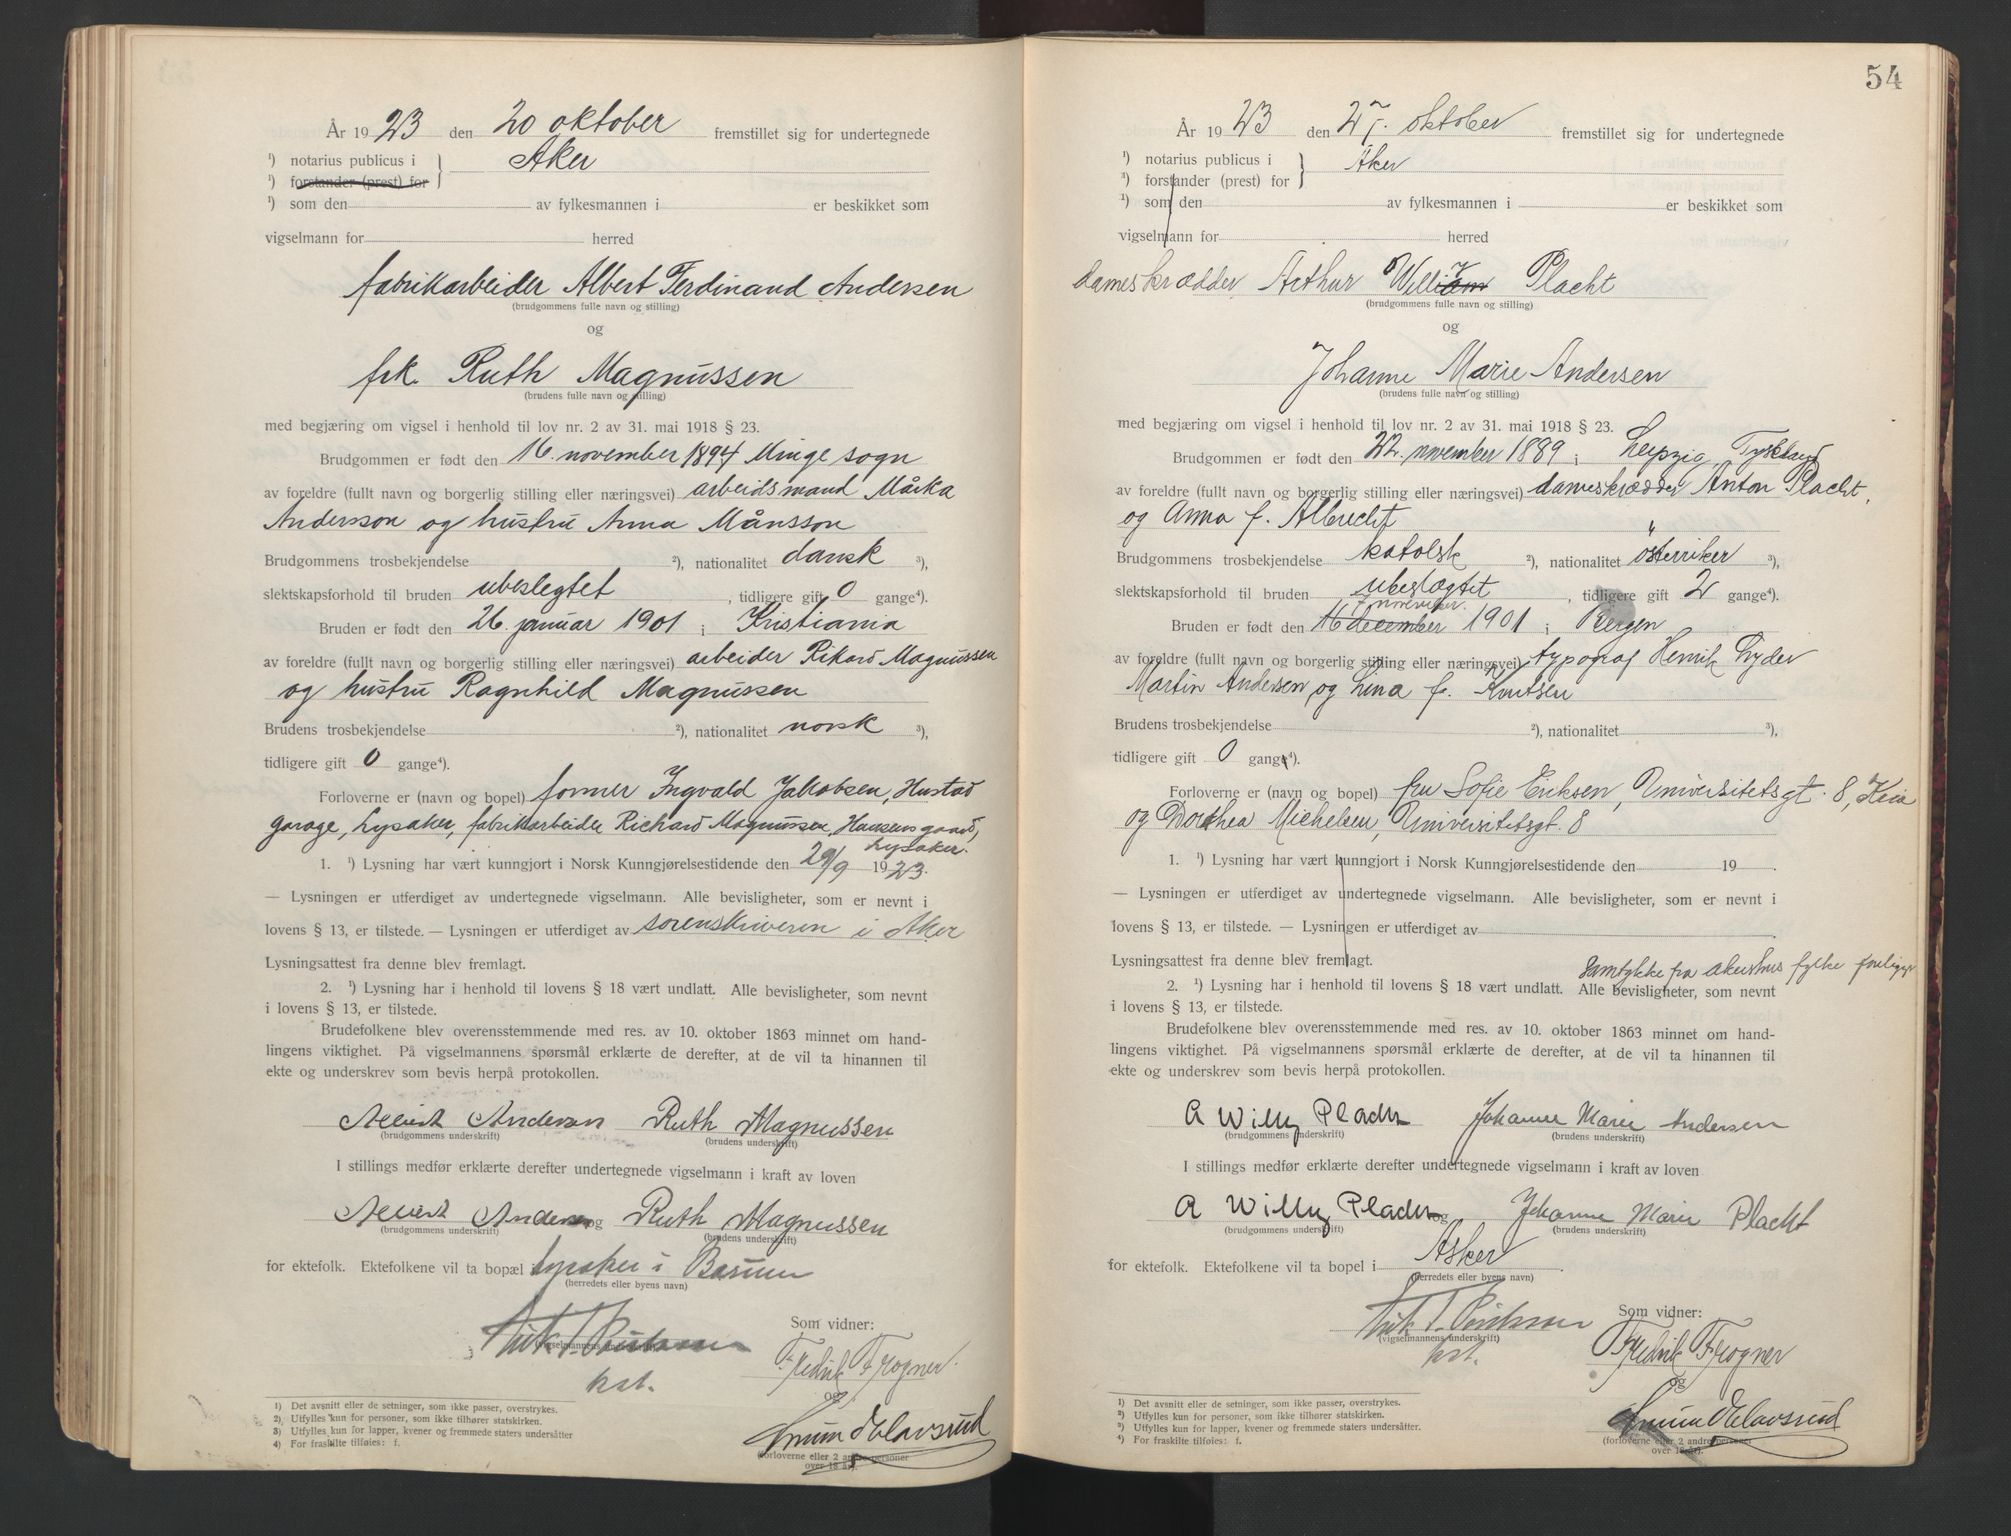 År 1923 den 20 oktober fremstillet sig for undertegnede
¹) notarius publicus i } Aker
¹) forstander (prest) for
¹) som den av fylkesmannen i er beskikket som
vigselmann for herred
fabrikarbeider Albert Ferdinand Andersen
(brudgommens fulle navn og stilling)
og
frk. Ruth Magnussen
(brudens fulle navn og stilling)
med begjæring om vigsel i henhold til lov nr. 2 av 31. mai 1918 § 23.
Brudgommen er født den 16. november 1894 Minge sogn
av foreldre (fullt navn og borgerlig stilling eller næringsvei) arbeidsmand
Andersson og hustru Anna Månsson
Brudgommens trosbekjendelse ²), nationalitet dansk ³),
slektskapsforhold til bruden ubeslegtet, tidligere gift 0 gange⁴).
Bruden er født den 26. januar 1901 i Kristiania
av foreldre (fullt navn og borgerlig stilling eller næringsvei) arbeider Rikard Magnussen
og hustru Ragnhild Magnussen
Brudens trosbekjendelse ²), nationalitet norsk ³),
tidligere gift 0 gange⁴).
Forloverne er (navn og bopel) former Ingvald Jakobsen, Hustad
garage, Lysaker, fabrikarbeider Richard Magnussen, Hansens gaard,
Lysaker.
1. ¹) Lysning har vært kunngjort i Norsk Kunngjørelsestidende den 29/9 1923.
— Lysningen er utferdiget av undertegnede vigselmann. Alle bevisligheter, som er nevnt i
lovens § 13, er tilstede. — Lysningen er utferdiget av sorenskriveren i Aker
Lysningsattest fra denne blev fremlagt.
2. ¹) Lysning har i henhold til lovens § 18 vært undlatt. Alle bevisligheter, som nevnt
i lovens § 13, er tilstede.
Brudefolkene blev overensstemmende med res. av 10. oktober 1863 minnet om hand-
lingens viktighet. På vigselmannens spørsmål erklærte de derefter, at de vil ta hinannen til
ekte og underskrev som bevis herpå protokollen.
Albert Andersen Ruth Magnussen
(brudgommens underskrift) (brudens underskrift)
I stillings medfør erklærte derefter undertegnede vigselmann i kraft av loven
Albert Andersen og Ruth Magnussen
(brudgommens underskrift) (brudens underskrift)
for ektefolk. Ektefolkene vil ta bopæl i Lysaker i Bærum
(herredets eller byens navn)
Som vidner:
(vigselmannens underskrift)
Fredrik Frogner.
kst.
og
(forloverne eller 2 andre personer
over 18 år).
1) Det avsnitt eller de setninger, som ikke passer, overstrykes.
2) Utfylles kun for personer, som ikke tilhører statskirken.
3) Utfylles kun for lapper, kvener og fremmede staters undersåtter
4) For fraskilte tilføies: f.
54
År 1923 den 27. oktober fremstillet sig for undertegnede
¹) notarius publicus i } Aker
¹) forstander (prest) for
¹) som den av fylkesmannen i er beskikket som
vigselmann for herred
dameskrædder Arthur William y Placht
(brudgommens fulle navn og stilling)
og
Johanne Marie Andersen
(brudens fulle navn og stilling)
med begjæring om vigsel i henhold til lov nr. 2 av 31. mai 1918 § 23.
Brudgommen er født den 22. november 1889 i Leipzig, Tyskland
av foreldre (fullt navn og borgerlig stilling eller næringsvei) dameskrædder Anton Placht,
og Anna f. Albrecht
Brudgommens trosbekjendelse katolsk ²), nationalitet österriker ³),
slektskapsforhold til bruden ubeslægtet, tidligere gift 2 gange⁴).
7 november.
Bruden er født den 16 december 1901 i Bergen
av foreldre (fullt navn og borgerlig stilling eller næringsvei) typograf Henrik Lyder
Martin Andersen og Lina f. Knutsen
Brudens trosbekjendelse ²), nationalitet ³),
tidligere gift 0 gange⁴).
Forloverne er (navn og bopel) fru Sofie Eriksen, Universitetsgt. 8, Kria
og Dorthea Michelsen, Universitetsgt. 8
1. ¹) Lysning har vært kunngjort i Norsk Kunngjørelsestidende den 19 .
— Lysningen er utferdiget av undertegnede vigselmann. Alle bevisligheter, som er nevnt i
lovens § 13, er tilstede. — Lysningen er utferdiget av
Lysningsattest fra denne blev fremlagt.
Samtykke fra akershus fylke foreligger
2. ¹) Lysning har i henhold til lovens § 18 vært undlatt. Alle bevisligheter, som nevnt
i lovens § 13, er tilstede.
Brudefolkene blev overensstemmende med res. av 10. oktober 1863 minnet om hand-
lingens viktighet. På vigselmannens spørsmål erklærte de derefter, at de vil ta hinannen til
ekte og underskrev som bevis herpå protokollen.
A Willy Placht Johanne Marie Andersen
(brudgommens underskrift) (brudens underskrift)
I stillings medfør erklærte derefter undertegnede vigselmann i kraft av loven
A Willy Placht og Johanne Marie Placht
(brudgommens underskrift) (brudens underskrift)
for ektefolk. Ektefolkene vil ta bopel i Asker.
(herredets eller byens navn)
Som vidner:
(vigselmannens underskrift)
Fredrik Frogner
kst.
og
(forloverne eller 2 andre personer
over 18 år).
¹) Det avsnitt eller de setninger, som ikke passer, overstrykes.
²) Utfylles kun for personer, som ikke tilhører statskirken.
³) Utfylles kun for lapper, kvener og fremmede staters undersåtter.
⁴) For fraskilte tilføies: f.